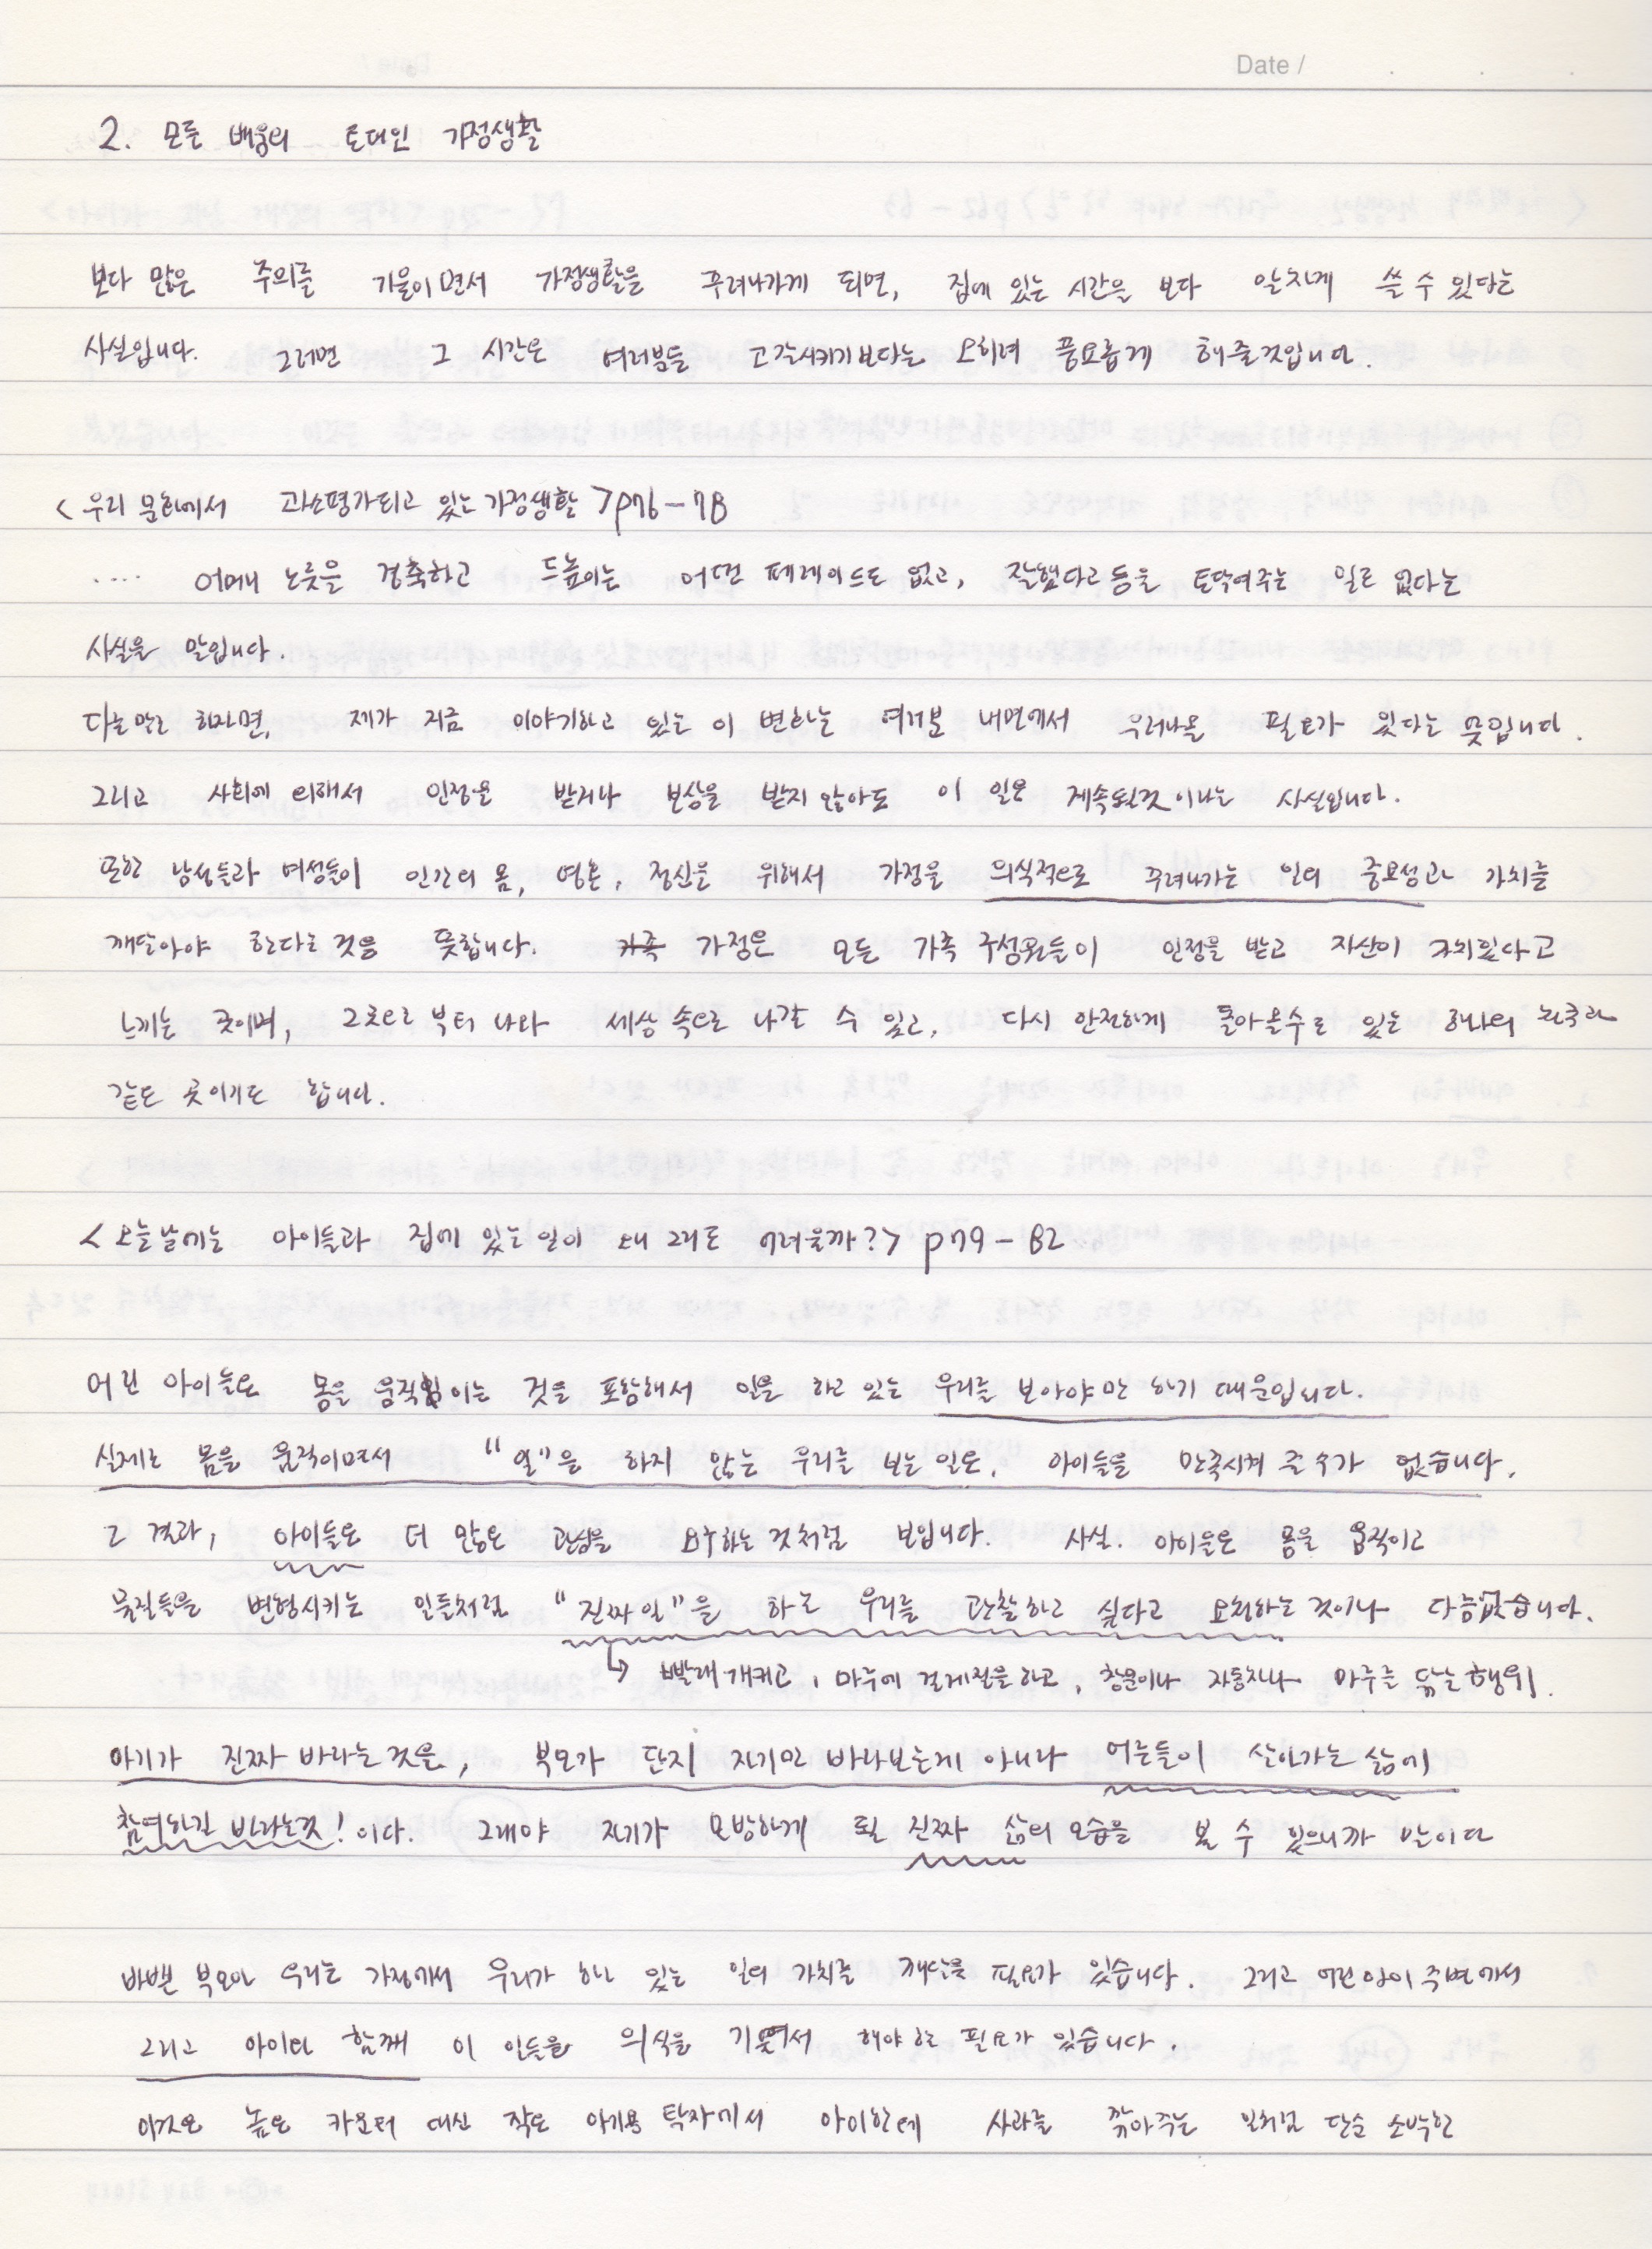 Date /
2. 모든 배움의 토대인 가정생활
보다 많은 주의를 기울이면서 가정생활을 꾸려나가게 되면, 집에 있는 시간을 보다 알차게 쓸 수 있다는
사실입니다. 그러면 그 시간은 여러분들 고갈시키기보다는 오히려 풍요롭게 해줄것입니다.
<우리 문화에서 과소평가되고 있는 가정생활>p76-78
.... 어머니 노릇을 경축하고 드높이는 어떤 퍼레이드도 없고, 잘했다고 등을 토닥여주는 일도 없다는
사실을 말입니다.
다른말로 하자면, 제가 지금 이야기하고 있는 이 변화는 여러분 내면에서 우러나올 필요가 있다는 뜻입니다.
그리고 사회에 의해서 인정을 받거나 보상을 받지 않아도 이 일은 계속될것이라는 사실입니다.
또한 남성들과 여성들이 인간의 몸, 영혼, 정신을 위해서 가정을 의식적으로 꾸려나가는 일의 중요성과 가치를
깨달아야 한다는 것을 뜻합니다. 가족 가정은 모든 가족 구성원들이 인정을 받고 자신이 가치있다고
느끼는 곳이며, 그곳으로 부터 나와 세상 속으로 나갈 수 있고, 다시 안전하게 돌아올수도 있는 하나의 왕국과
같은 곳이기도 합니다.
<오늘날에는 아이들과 집에 있는 일이 왜 그리도 어려울까?> p79-82
어린 아이들은 몸을 움직이는 것을 포함해서 일을 하고 있는 우리를 보아야만 하기 때문입니다.
실제로 몸을 움직이면서 "일"을 하지 않는 우리를 보는 일은, 아이들을 만족시켜 줄 수가 없습니다.
그 결과, 아이들은 더 많은 관심을 요구하는 것처럼 보입니다. 사실. 아이들은 몸을 움직이고
물질들을 변형시키는 일들처럼 "진짜 일"을 하는 우리를 관찰하고 싶다고 요청하는 것이나 다름없습니다.
↳ 빨래 개키고, 마루에 걸레질을 하고, 창문이나 자동차나 마루를 닦는 행위.
아기가 진짜 바라는 것은, 부모가 단지 자기만 바라보는게 아니라 어른들이 살아가는 삶에
참여하길 바라는것! 이다. 그래야 자기가 모방하게 될 진짜 삶의 모습을 볼 수 있으니까 말이다
바쁜 부모인 우리는 가정에서 우리가 하고 있는 일의 가치를 깨달을 필요가 있습니다. 그리고 어린 아이 주변에서
그리고 아이와 함께 이 일들을 의식을 기울여서 해야 할 필요가 있습니다.
이것은 높은 카운터 대신 작은 아기용 탁자에서 아이한테 사과를 깎아주는 일처럼 단순 소박한